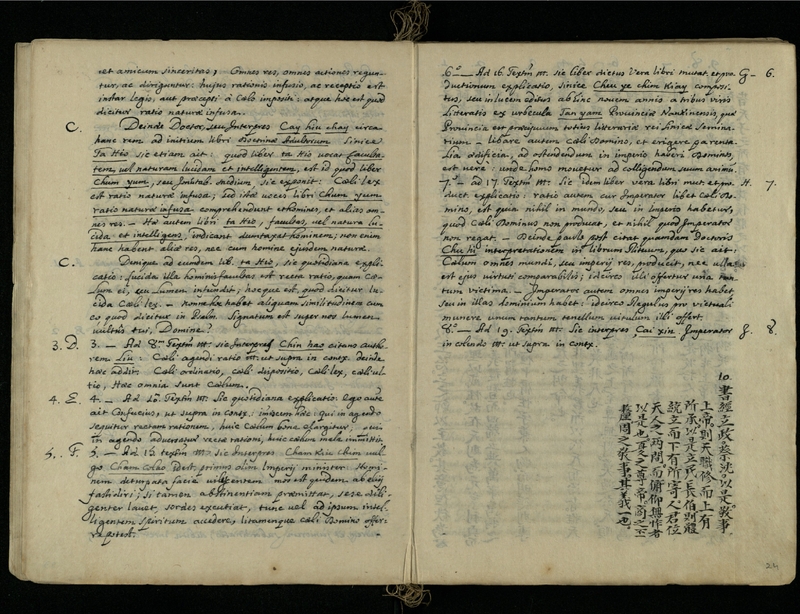 et amicum sinceritas; Omnes res, omnes actiones regun-
tur, ac diriguntur: hujus rationis infusio, ac receptio est
instar legis, aut præcepti à Cœlo impositi: atque hoc est quod
dicitur ratio naturæ infusa.
C. Deinde Doctor, seu Interpres Cay hiu chay circa
hanc rem ad initium libri Doctrinæ Adultorum Sinicè
Ta Hio sic etiam ait: quod liber ta Hio vocat faculta-
tem, vel naturam lucidam et intelligentem, est id quod liber
Chum yum, seu sic exponit: Cœli lex
est ratio naturæ infusa; sed istæ voces libri Chum yum
ratio naturæ infusa comprehendunt et homines, et alias om-
nes res. — Hæ autem libri ta Hio, facultas, vel natura lu-
cida et intelligens, indicant dumtaxat hominem; non enim
hanc habent aliæ res, nec cum homine ejusdem naturæ.
C. Denique ad eundem lib. ta Hio, sic quotidiana expli-
catio: lucida illa hominis facultas est recta ratio, quam Cœ-
lum ei, seu lumen intendit; hoc que est, quod dicitur lu-
cida Cœli lex. — habet aliquam similitudinem cum
eo quod dicitur in Psalm. Signatum est super nos lumen
vultus tui, Domine?
3. D. 3. — Ad 8um Textum sic Interpres Chin hao citans Autho-
rem Liu: Cœli agendi ratio ut supra in contx. deinde
hæc addit. Cœli ordinatio, cœli dispositio, Cœli lex, cœli ul-
tio, Hæc omnia sunt Cœlum.
4. E. 4. — Ad 10. Textum Sic quotidiana explicatio: ego aute
ait Confucius, ut supra in contx: hic: qui in agendo
sequitur rectam rationem, huic Cœlum bona elargitur, qui
in agendo adversatur rectæ rationi, huic cœlum mala immittit.
5. F. 5. — Ad 13 textum Sic Interpres Cham Kiu Chim vul-
go Cham Colao idest primus olim Imperij minister. Homi-
nem deturpata facie mos est quidem ab eius
fastidiri; si tamen abstinentiam præmittat, sese dili-
genter lavet, sordes excutiat, tunc vel ad ipsum intel-
ligentem Spiritum accedere, litamenque cœli Domino offer-
re potest.
6.° — Ad 16. Textum sic liber dictus vera libri mutat. et pro- G — 6.
ductionum explicatio, sinicè Cheu ye chim Kiay composi-
tus, seu in lucem editus abhinc novem annis a tribus viris
Litteratis ex urbecula Tan yam Provinciæ Nankinensis, quæ
Provincia est præcipuum totius literariæ rei Sinicæ Semina-
rium — libare autem Cœli Domino, et erigere parenta-
lia ædificia, ad ostendendum in imperio haberi Dominos,
est vere: unde homo movetur ad colligendum suum animum.
7.° — ad 17 Textum Sic idem liber vera libri mut. et pro- H. 7.
duct. explicatio: ratio autem cur Imperator labet Cœli Do-
mino, est quia nihil in mundo, seu in Imperio habetur,
quod Cœli Dominus non producat, et nihil quod Imperator
non regat. — Deinde paulo post citat quamdam Doctoris
Chu hi interpretationem in librum Rituum, quo sic ait;
Cœlum omnes mundi, seu imperij res, producit, nec ulla
est ejus virtuti comparabilis; idcirco illi offertur una tan-
tum victima. — Imperator autem omnes imperij res habet
seu in illas dominium habet: idcirco Regulus pro victuali
munere unum tantum tenellum vitulum illi offert.
8.° — Ad 19. Textum Sic interpres, Cai xin Imperator J. 8.
in colendo ut supra in contx.
10. 書經立政蔡沈以是敬事
上帝則天職修而上有
所承以是立民長伯則體
統立而下有所寄人君位
天人之兩間而俯仰無怍者
以是也夏之尊帝商之丕
釐周之敬事其義一也
24